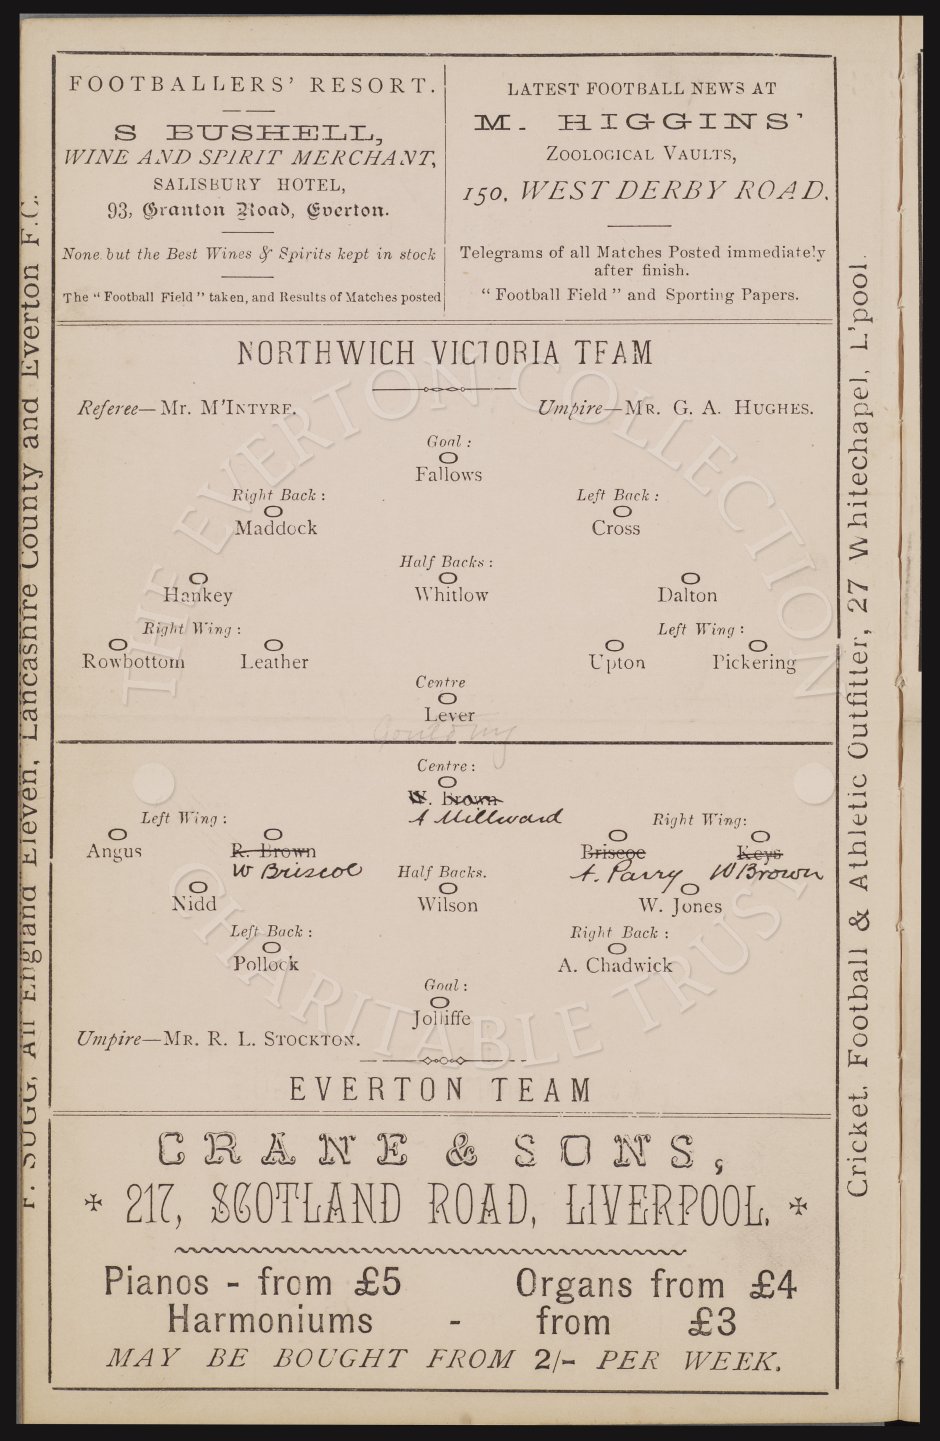 FOOTBALLERS' RESORT.
S BUSHELL,
WINE AND SPIRIT MERCHANT,
SALISBURY HOTEL,
93, Granton Road, Everton.
None but the Best Wines & Spirits kept in stock
The "Football Field" taken, and Results of Matches posted
LATEST FOOTBALL NEWS AT
M. HIGGINS'
ZOOLOGICAL VAULTS,
150, WEST DERBY ROAD.
Telegrams of all Matches Posted immediately
after finish.
"Football Field" and Sporting Papers.
F. SUGG, All England Eleven, Lancashire County and Everton F.C.
NORTHWICH VICTORIA TEAM
Referee—MR. M'INTYRE. Umpire—MR. G. A. HUGHES.
Goal:
Fallows
Right Back: Left Back:
Maddock Cross
Half Backs:
Hankey Whitlow Dalton
Right Wing: Left Wing:
Rowbottom Leather Upton Pickering
Centre
Lever
Goulding
Centre:
W. Brown
A Millward
Left Wing: Right Wing:
Angus R. Brown Briscoe Keys
W Briscoe A. Parry W Brown
Half Backs.
Nidd Wilson W. Jones
Left Back: Right Back:
Pollock A. Chadwick
Goal:
Jolliffe
Umpire—MR. R. L. STOCKTON.
EVERTON TEAM
CRANE & SONS,
217, SCOTLAND ROAD, LIVERPOOL.
Pianos - from £5 Organs from £4
Harmoniums - from £3
MAY BE BOUGHT FROM 2/- PER WEEK.
Cricket, Football & Athletic Outfitter, 27 Whitechapel, L'pool.
THE EVERTON COLLECTION
CHARITABLE TRUST